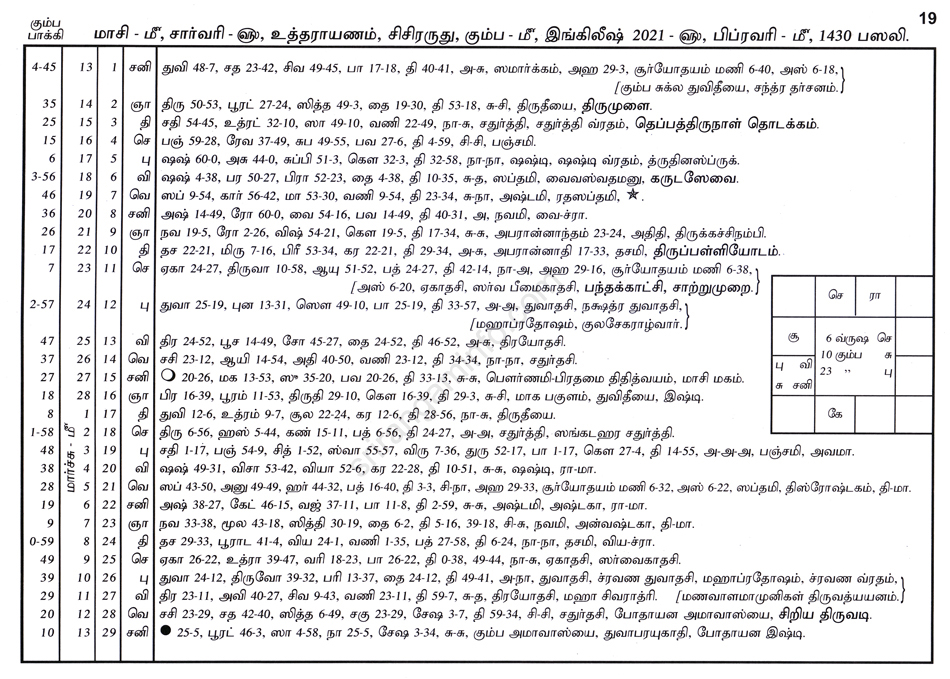 19
கும்ப
பாக்கி
மாசி - மீ, சார்வரி - ௵, உத்தராயணம், சிசிரருது, கும்ப - மீ, இங்கிலீஷ் 2021 - ௵, பிப்ரவரி - மீ, 1430 பஸலி.
4-45 13 1 சனி துவி 48-7, சத 23-42, சிவ 49-45, பா 17-18, தி 40-41, அ-சு, ஸமார்க்கம், அஹ 29-3, சூர்யோதயம் மணி 6-40, அஸ் 6-18,
[கும்ப சுக்ல துவிதீயை, சந்த்ர தர்சனம்.
35 14 2 ஞா திரு 50-53, பூரட் 27-24, ஸித்த 49-3, தை 19-30, தி 53-18, சு-சி, திருதீயை, திருமுளை.
25 15 3 தி சதி 54-45, உத்ரட் 32-10, ஸா 49-10, வணி 22-49, நா-சு, சதுர்த்தி, சதுர்த்தி வ்ரதம், தெப்பத்திருநாள் தொடக்கம்.
15 16 4 செ பஞ் 59-28, ரேவ 37-49, சுப 49-55, பவ 27-6, தி 4-59, சி-சி, பஞ்சமி.
6 17 5 பு ஷஷ் 60-0, அசு 44-0, சுப்பி 51-3, கௌ 32-3, தி 32-58, நா-நா, ஷஷ்டி, ஷஷ்டி வ்ரதம், த்ருதினஸ்ப்ருக்.
3-56 18 6 வி ஷஷ் 4-38, பர 50-27, பிரா 52-23, தை 4-38, தி 10-35, சு-த, ஸப்தமி, வைவஸ்வதமனு, கருடஸேவை.
46 19 7 வெ ஸப் 9-54, கார் 56-42, மா 53-30, வணி 9-54, தி 23-34, சு-நா, அஷ்டமி, ரதஸப்தமி, ★.
36 20 8 சனி அஷ் 14-49, ரோ 60-0, வை 54-16, பவ 14-49, தி 40-31, அ, நவமி, வை-ச்ரா.
26 21 9 ஞா நவ 19-5, ரோ 2-26, விஷ் 54-21, கௌ 19-5, தி 17-34, சு-சு, அபரான்னாந்தம் 23-24, அதிதி, திருக்கச்சிநம்பி.
17 22 10 தி தச 22-21, மிரு 7-16, பிரீ 53-34, கர 22-21, தி 29-34, அ-சு, அபரான்னாதி 17-33, தசமி, திருப்பள்ளியோடம்.
7 23 11 செ ஏகா 24-27, திருவா 10-58, ஆயு 51-52, பத் 24-27, தி 42-14, நா-அ, அஹ 29-16, சூர்யோதயம் மணி 6-38,
[அஸ் 6-20, ஏகாதசி, ஸர்வ பீமைகாதசி, பந்தக்காட்சி, சாற்றுமுறை.
2-57 24 12 பு துவா 25-19, புன 13-31, ஸௌ 49-10, பா 25-19, தி 33-57, அ-அ, துவாதசி, நக்ஷத்ர துவாதசி,
[மஹாப்ரதோஷம், குலசேகராழ்வார்.
47 25 13 வி திர 24-52, பூச 14-49, சோ 45-27, தை 24-52, தி 46-52, அ-சு, திரயோதசி.
37 26 14 வெ சசி 23-12, ஆயி 14-54, அதி 40-50, வணி 23-12, தி 34-34, நா-நா, சதுர்தசி.
27 27 15 சனி ◯ 20-26, மக 13-53, ஸு 35-20, பவ 20-26, தி 33-13, சு-சு, பௌர்ணமி-பிரதமை திதித்வயம், மாசி மகம்.
18 28 16 ஞா பிர 16-39, பூரம் 11-53, திருதி 29-10, கௌ 16-39, தி 29-3, சு-சி, மாக பகுளம், துவிதீயை, இஷ்டி.
மார்ச்சு - மீ
8 1 17 தி துவி 12-6, உத்ரம் 9-7, சூல 22-24, கர 12-6, தி 28-56, நா-சு, திருதீயை.
1-58 2 18 செ திரு 6-56, ஹஸ் 5-44, கண் 15-11, பத் 6-56, தி 24-27, அ-அ, சதுர்த்தி, ஸங்கடஹர சதுர்த்தி.
48 3 19 பு சதி 1-17, பஞ் 54-9, சித் 1-52, ஸ்வா 55-57, விரு 7-36, துரு 52-17, பா 1-17, கௌ 27-4, தி 14-55, அ-அ-அ, பஞ்சமி, அவமா.
38 4 20 வி ஷஷ் 49-31, விசா 53-42, வியா 52-6, கர 22-28, தி 10-51, சு-சு, ஷஷ்டி, ரா-மா.
28 5 21 வெ ஸப் 43-50, அனு 49-49, ஹர் 44-32, பத் 16-40, தி 3-3, சி-நா, அஹ 29-33, சூர்யோதயம் மணி 6-32, அஸ் 6-22, ஸப்தமி, திஸ்ரோஷ்டகம், தி-மா.
19 6 22 சனி அஷ் 38-27, கேட் 46-15, வஜ் 37-11, பா 11-8, தி 2-59, சு-சு, அஷ்டமி, அஷ்டகா, ரா-மா.
9 7 23 ஞா நவ 33-38, மூல 43-18, ஸித்தி 30-19, தை 6-2, தி 5-16, 39-18, சி-சு, நவமி, அன்வஷ்டகா, தி-மா.
0-59 8 24 தி தச 29-33, பூராட 41-4, விய 24-1, வணி 1-35, பத் 27-58, தி 6-24, நா-நா, தசமி, விய-ச்ரா.
49 9 25 செ ஏகா 26-22, உத்ரா 39-47, வரி 18-23, பா 26-22, தி 0-38, 49-44, நா-சு, ஏகாதசி, ஸர்வைகாதசி.
39 10 26 பு துவா 24-12, திருவோ 39-32, பரி 13-37, தை 24-12, தி 49-41, அ-நா, துவாதசி, ச்ரவண துவாதசி, மஹாப்ரதோஷம், ச்ரவண வ்ரதம்,
29 11 27 வி திர 23-11, அவி 40-27, சிவ 9-43, வணி 23-11, தி 59-7, சு-த, திரயோதசி, மஹா சிவராத்ரி. [மணவாளமாமுனிகள் திருவத்யயனம்.
20 12 28 வெ சசி 23-29, சத 42-40, ஸித்த 6-49, சகு 23-29, சேஷ 3-7, தி 59-34, சி-சி, சதுர்தசி, போதாயன அமாவாஸ்யை, சிறிய திருவடி.
10 13 29 சனி ● 25-5, பூரட் 46-3, ஸா 4-58, நா 25-5, சேஷ 3-34, சு-சு, கும்ப அமாவாஸ்யை, துவாபரயுகாதி, போதாயன இஷ்டி.
செ ரா
சூ
6 வ்ருஷ செ
10 கும்ப சு
23 " பு
பு வி
சு சனி
கே